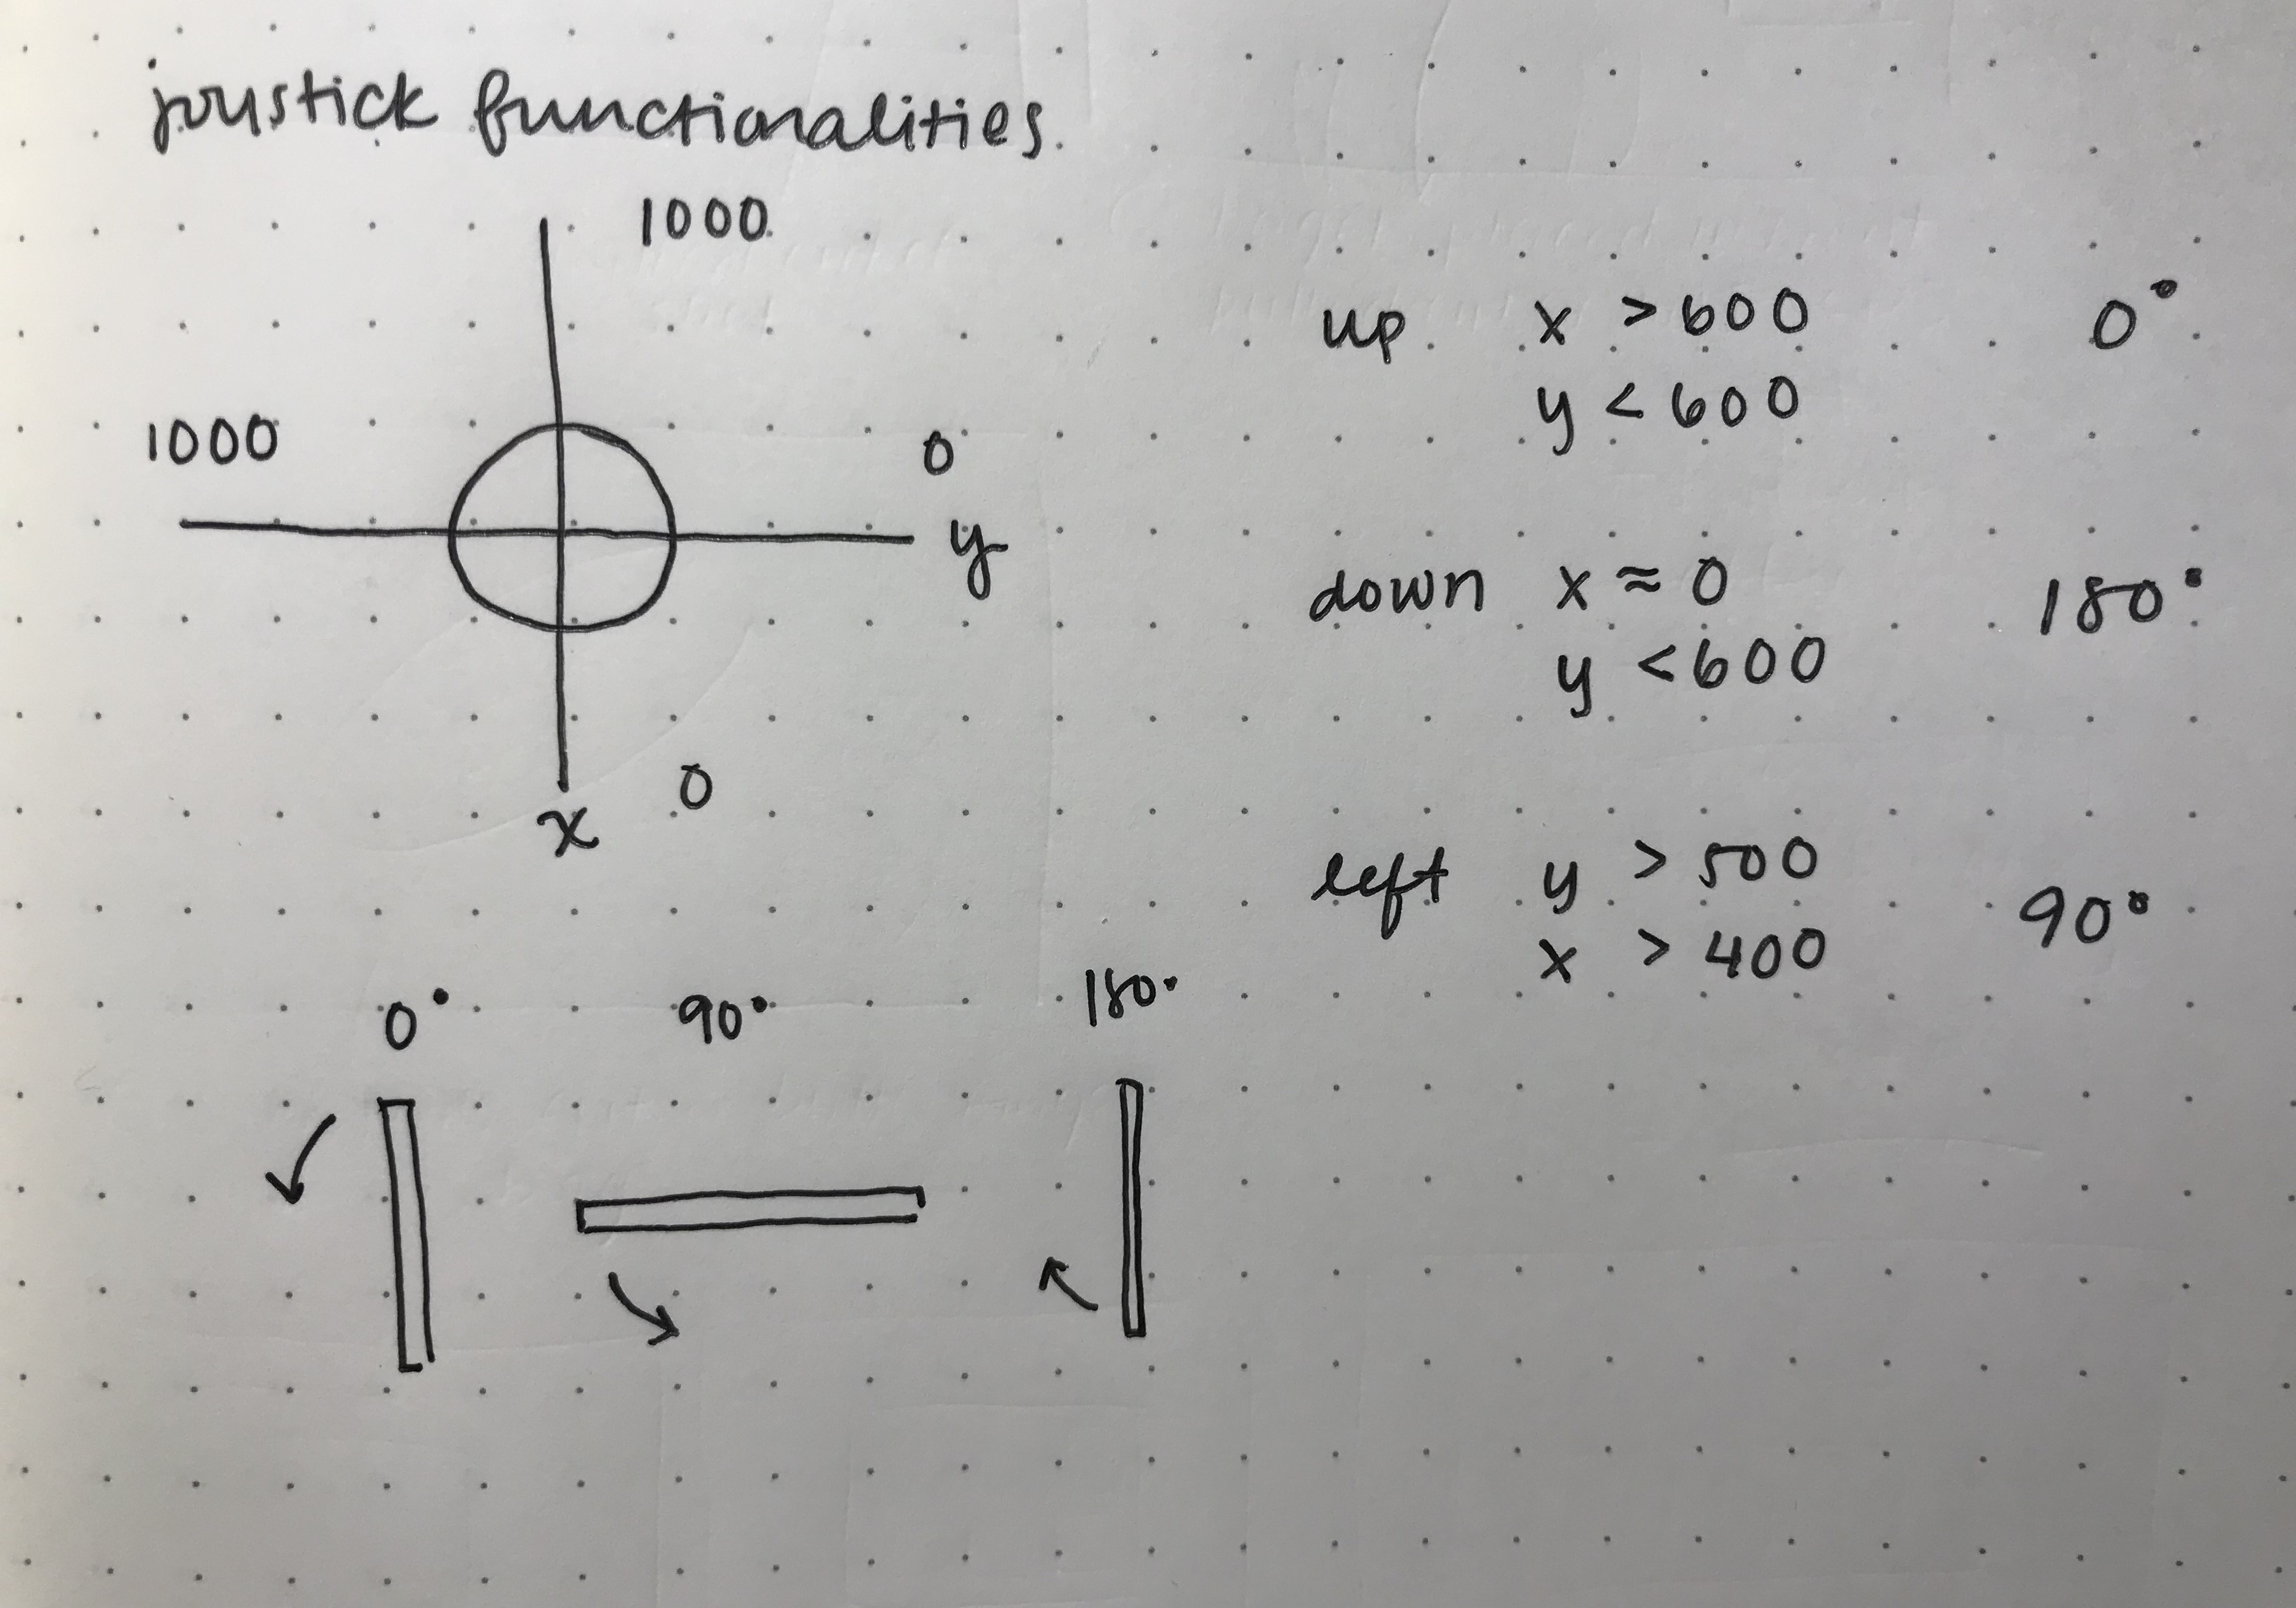 joystick functionalities
1000
1000
0
y
0
x
up x > 600 0°
y < 600
down x ≈ 0 180°
y < 600
left y > 500 90°
x > 400
0° 90° 180°